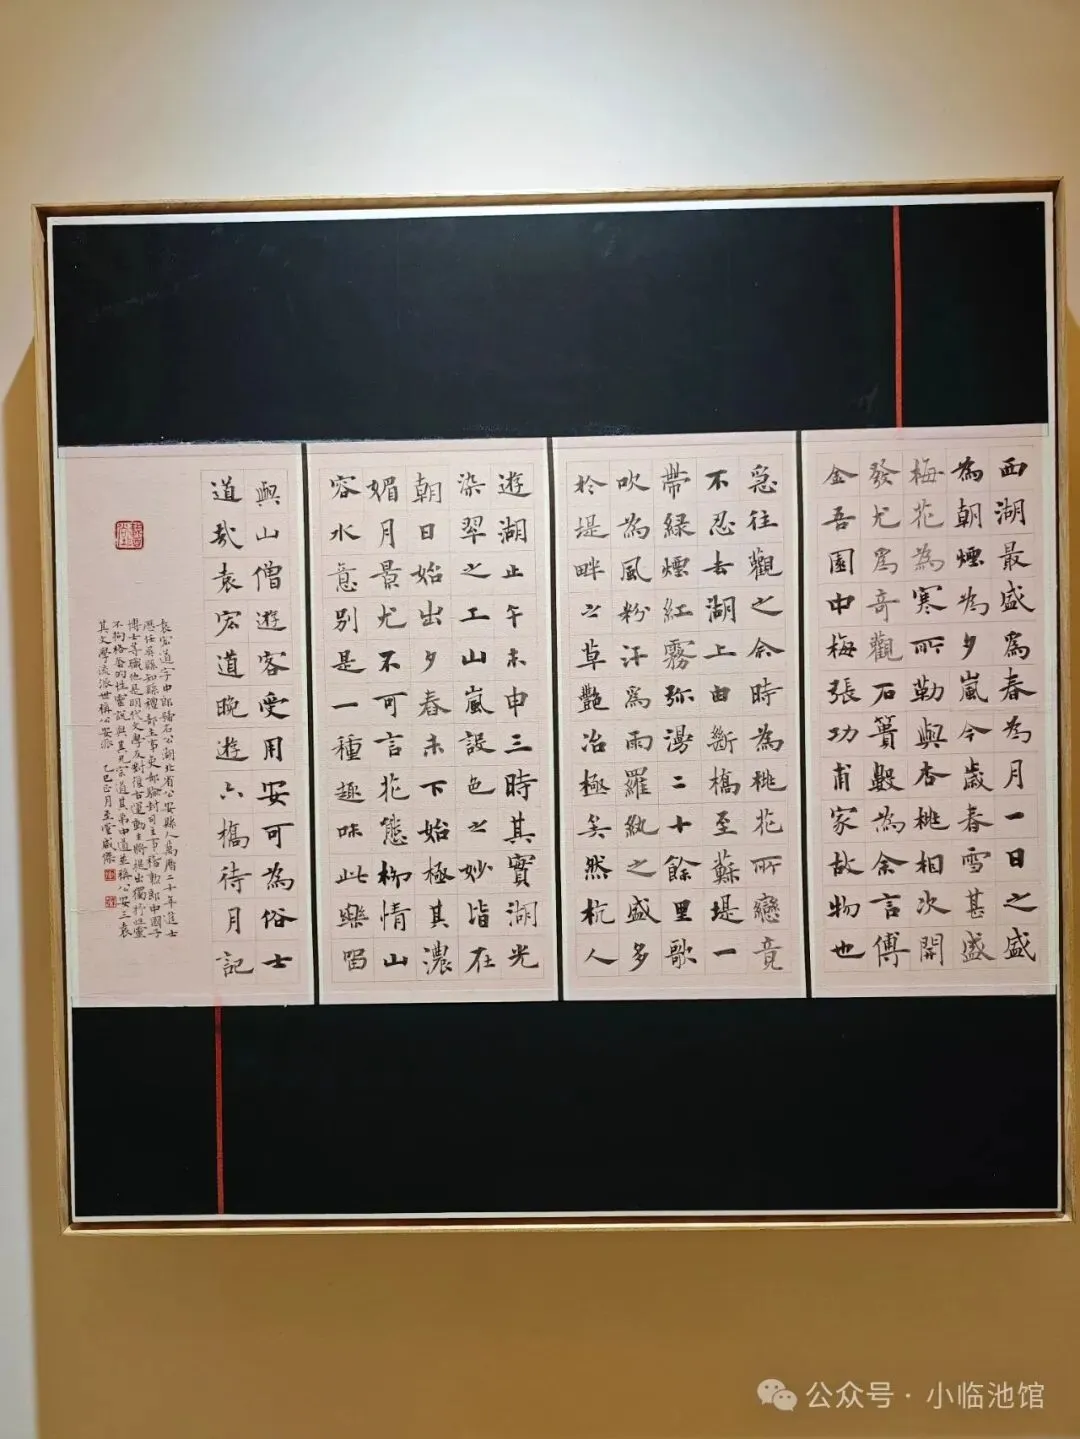 西湖最盛爲春为月一日之盛
為朝煙为夕嵐今歲春雪甚盛
梅花為寒所勒與杏桃相次開
發尤爲奇觀石簣數為余言傅
金吾園中梅張功甫家故物也
急往觀之余時為桃花所戀竟
不忍去湖上由斷橋至蘇堤一
帶緑煙紅霧弥漫二十餘里歌
吹為風粉汗爲雨羅紈之盛多
於堤畔之草艷冶極矣然杭人
遊湖止午未申三時其實湖光
染翠之工山嵐設色之妙皆在
朝日始出夕春未下始極其濃
媚月景尤不可言花態柳情山
容水意別是一種趣味此樂留
與山僧遊客受用安可為俗士
道哉袁宏道晚遊六橋待月記
袁宏道字中郎號石公湖北省公安縣人萬曆二十年進士
歷任吳縣知縣禮部主事吏部驗封司主事稽勲郎中國子
博士等職他是明代文學反對復古運動主將提出獨抒性靈
不拘格套的性靈說與其兄宗道其弟中道並稱公安三袁
其文學流派世稱公安派 乙巳正月
公众号·小临池馆